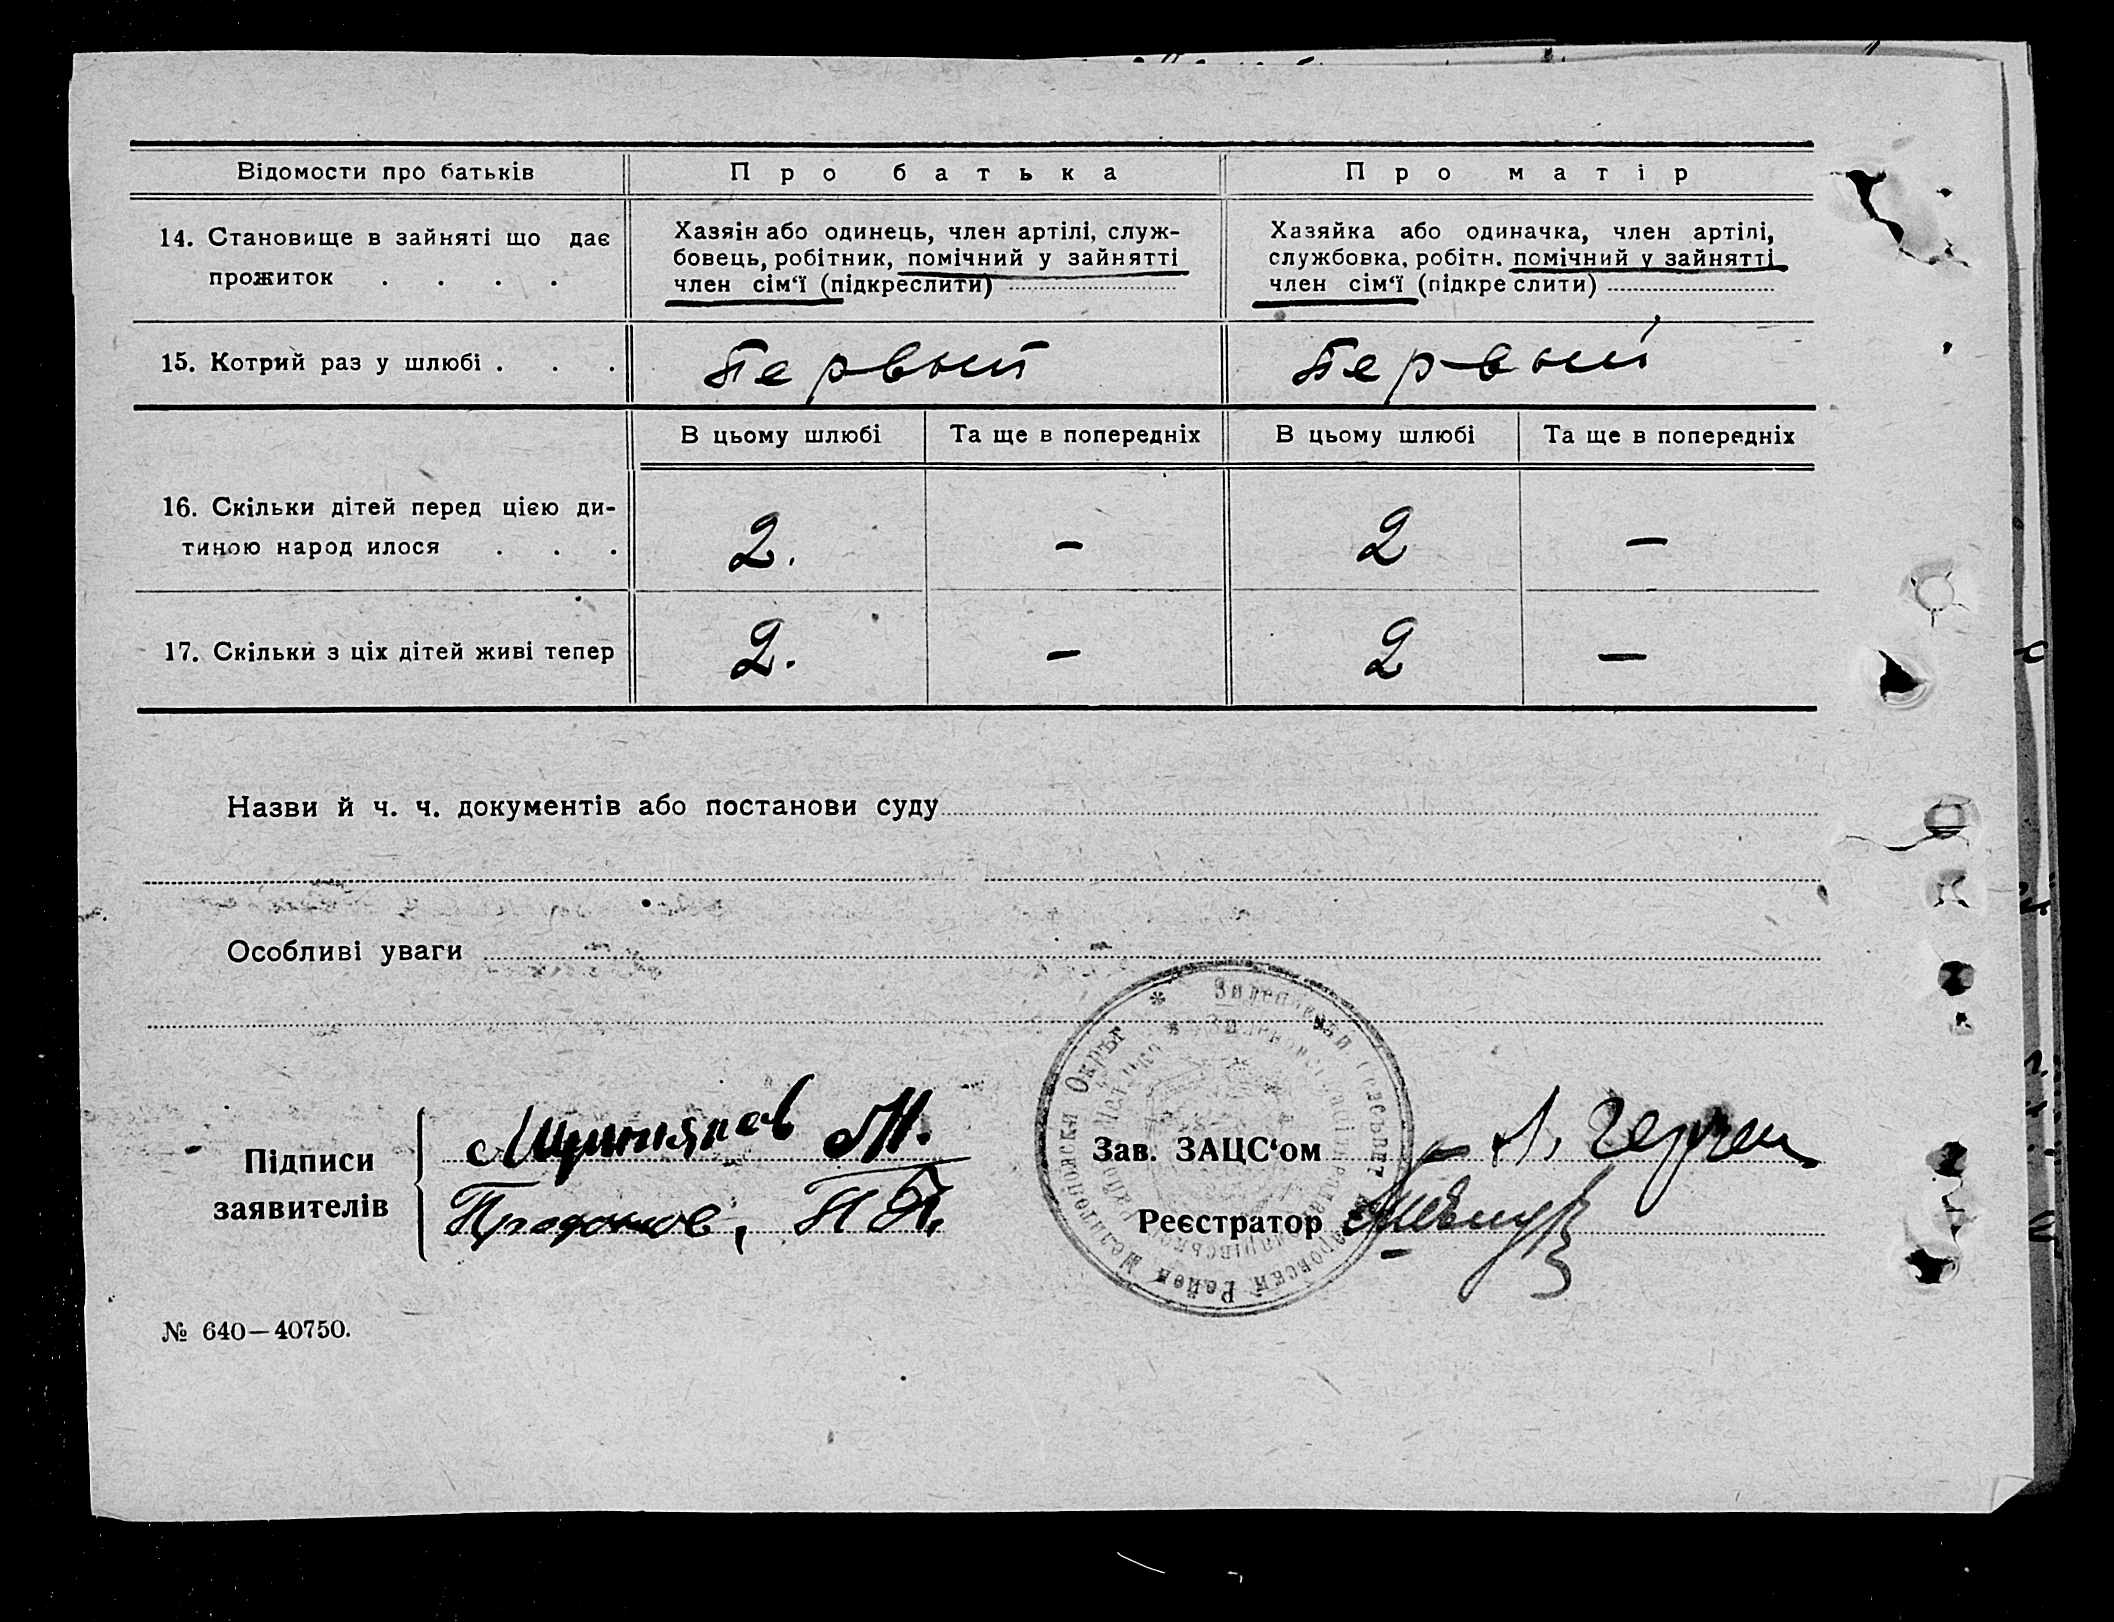 Відомости про батьків
Про батька
Про матір
14. Становище в зайняті що дає
прожиток . . . .
Хазяїн або одинець, член артілі, служ-
бовець, робітник, помічний у зайнятті
член сім'ї (підкреслити)
Хазяйка або одиначка, член артілі,
службовка, робітн. помічний у зайнятті
член сім'ї (підкре слити)
15. Котрий раз у шлюбі . . .
Первый
Первый
В цьому шлюбі
Та ще в попередніх
В цьому шлюбі
Та ще в попередніх
16. Скільки дітей перед цією ди-
тиною народ илося . . .
2.
–
2
–
17. Скільки з ціх дітей живі тепер
2.
–
2
–
Назви й ч. ч. документів або постанови суду
Особливі уваги
Підписи
заявителів
Зав. ЗАЦС'ом
Реєстратор
Мелитополски Окръг
№ 640—40750.